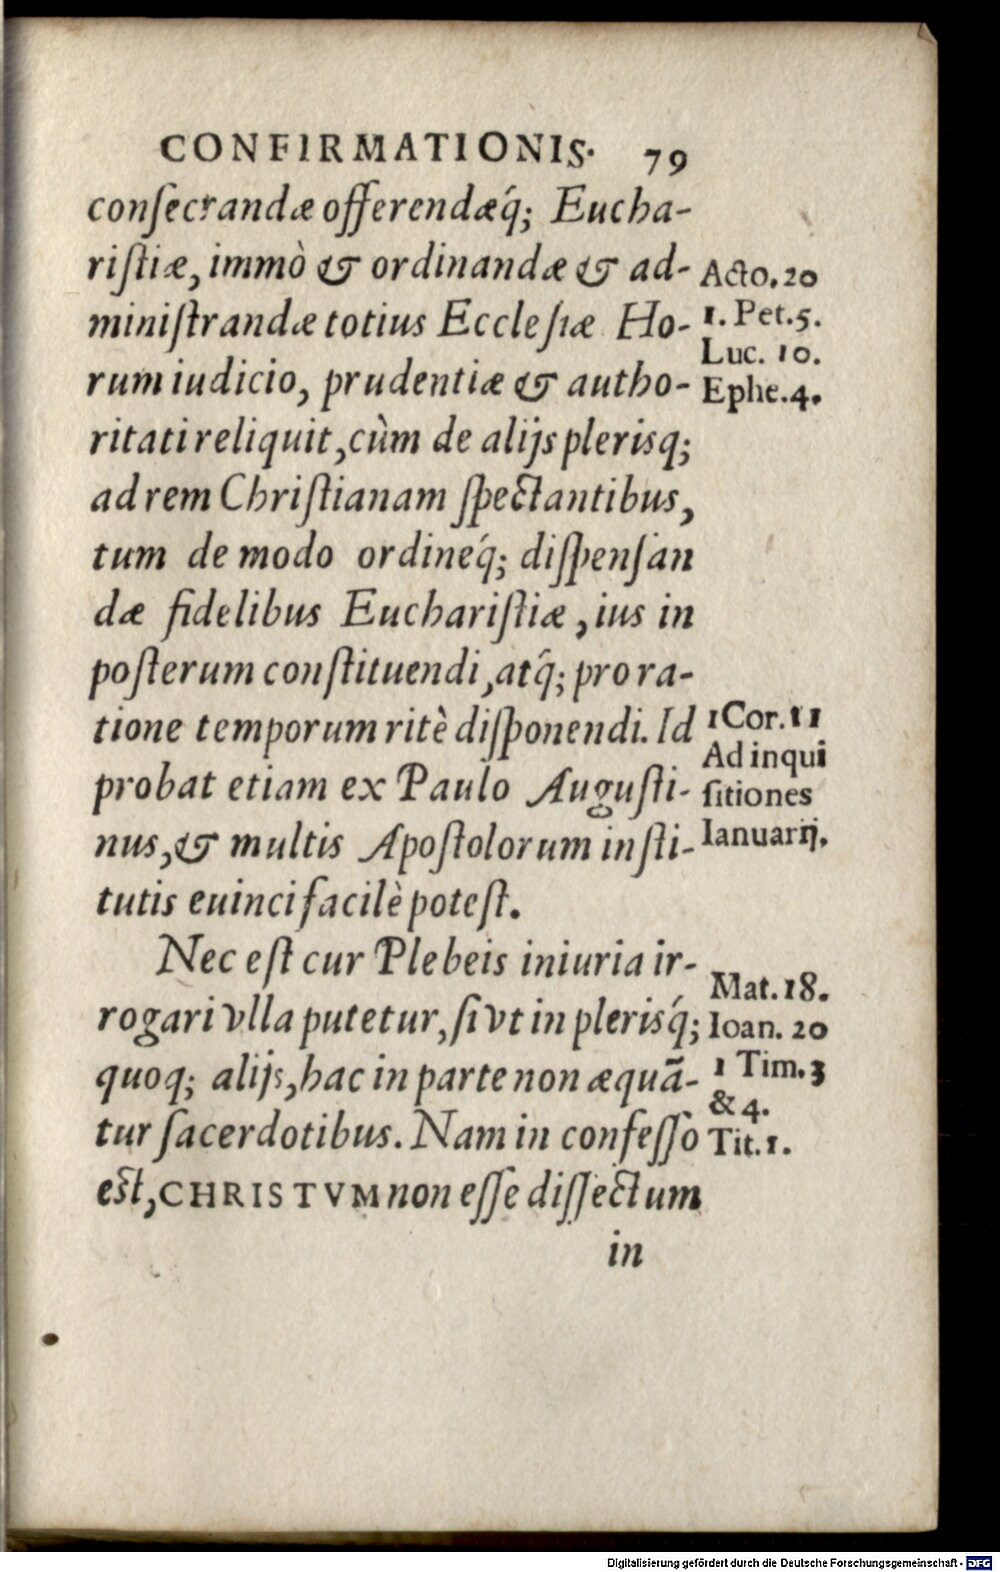 CONFIRMATIONIS. 79
conſecrandæ offerendæq́; Eucha-
riſtiæ, immò & ordinandæ & ad-
miniſtrandæ totius Eccleſiæ Ho-
rum iudicio, prudentiæ & autho-
ritati reliquit, cùm de alijs plerisq;
ad rem Chriſtianam ſpectantibus,
tum de modo ordineq́; diſpenſan
dæ fidelibus Euchariſtiæ, ius in
poſterum conſtituendi, atq́; pro ra-
tione temporum ritè diſponendi. Id
probat etiam ex Paulo Auguſti-
nus, & multis Apoſtolorum inſti-
tutis euinci facilè poteſt.
Nec eſt cur Plebeis iniuria ir-
rogari vlla putetur, ſi vt in plerisq́;
quoq; alijs, hac in parte non æquã-
tur ſacerdotibus. Nam in confeſſo
eſt, CHRISTVM non eſſe diſſectum
in
Acto. 20
1. Pet. 5.
Luc. 10.
Ephe. 4.
1 Cor. 11
Ad inqui
ſitiones
Ianuarij.
Mat. 18.
Ioan. 20
1 Tim. 3
& 4.
Tit. 1.
Digitalisierung gefördert durch die Deutsche Forschungsgemeinschaft - DFG